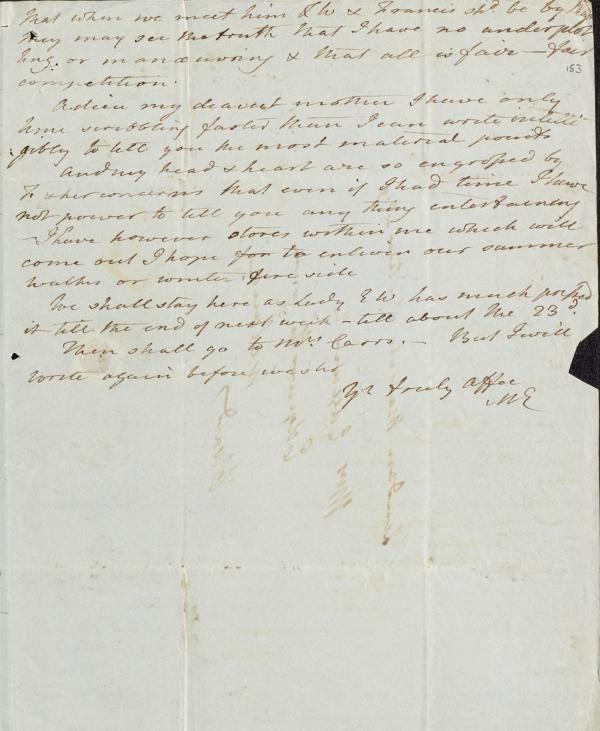 that when we meet him & Francis shd. be by that
they may see the truth that I have no underplot
ting or manœuvring & that all is fair – fair
153
competition.
Adieu my dearest mother I have only
time scribbling faster than I can write intelli
gibly to tell you the most material points
And my head & heart are so engrossed by
F & her concerns that even if I had time I have
not power to tell you any thing entertaining
– I have however stores within me which will
come out I hope for to enliven our summer
walks or winter fire side
We shall stay here as Lady E W has much pressed
it till the end of next week – till about the 23d.
Then shall go to Mrs Carrs. – But I will
write again before we go
Yr truly affec
ME